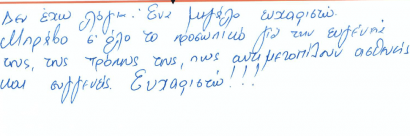 Δεν έχω λόγια! Ένα μεγάλο ευχαριστώ.
Μπράβο σ' όλο το προσωπικό για την ευγένεια
τους, τους τρόπους τους, πως αντιμετωπίζουν ασθενείς
και συγγενείς. Ευχαριστώ!!!